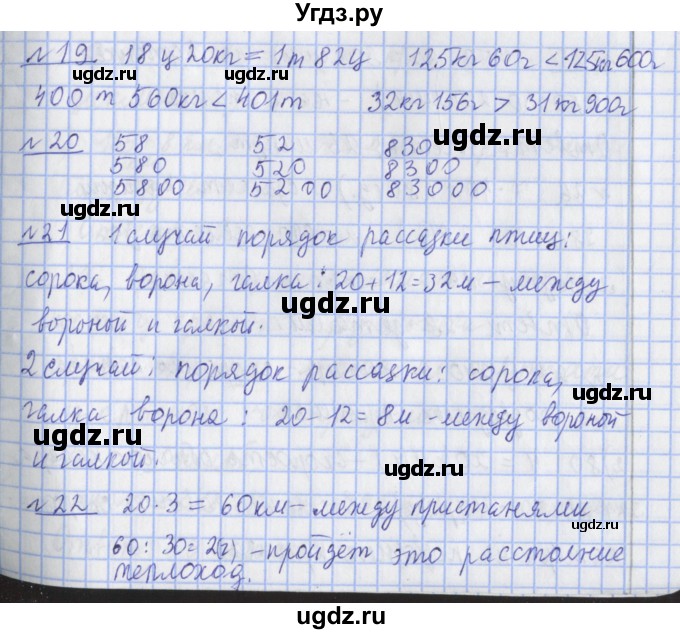 Угдз.ру
№19 18ц 20кг = 1т 82ц 125кг 60г < 125кг 600г
400т 560кг < 401т 32кг 156г > 31кг 900г
№20 58 52 830
580 520 8300
5800 5200 83000
№21 1 случай порядок рассадки птиц:
сорока, ворона, галка: 20+12=32м - между
вороной и галкой.
2 случай: порядок рассадки: сорока,
галка ворона: 20-12=8м - между вороной
и галкой.
№22 20·3=60км - между пристанями
60:30=2(ч) - пройдёт это расстояние
теплоход.
ugdz.ru
ugdz.ru
ugdz.ru
ugdz.ru
ugdz.ru
ugdz.ru
ugdz.ru
ugdz.ru
ugdz.ru
ugdz.ru
ugdz.ru
ugdz.ru
ugdz.ru